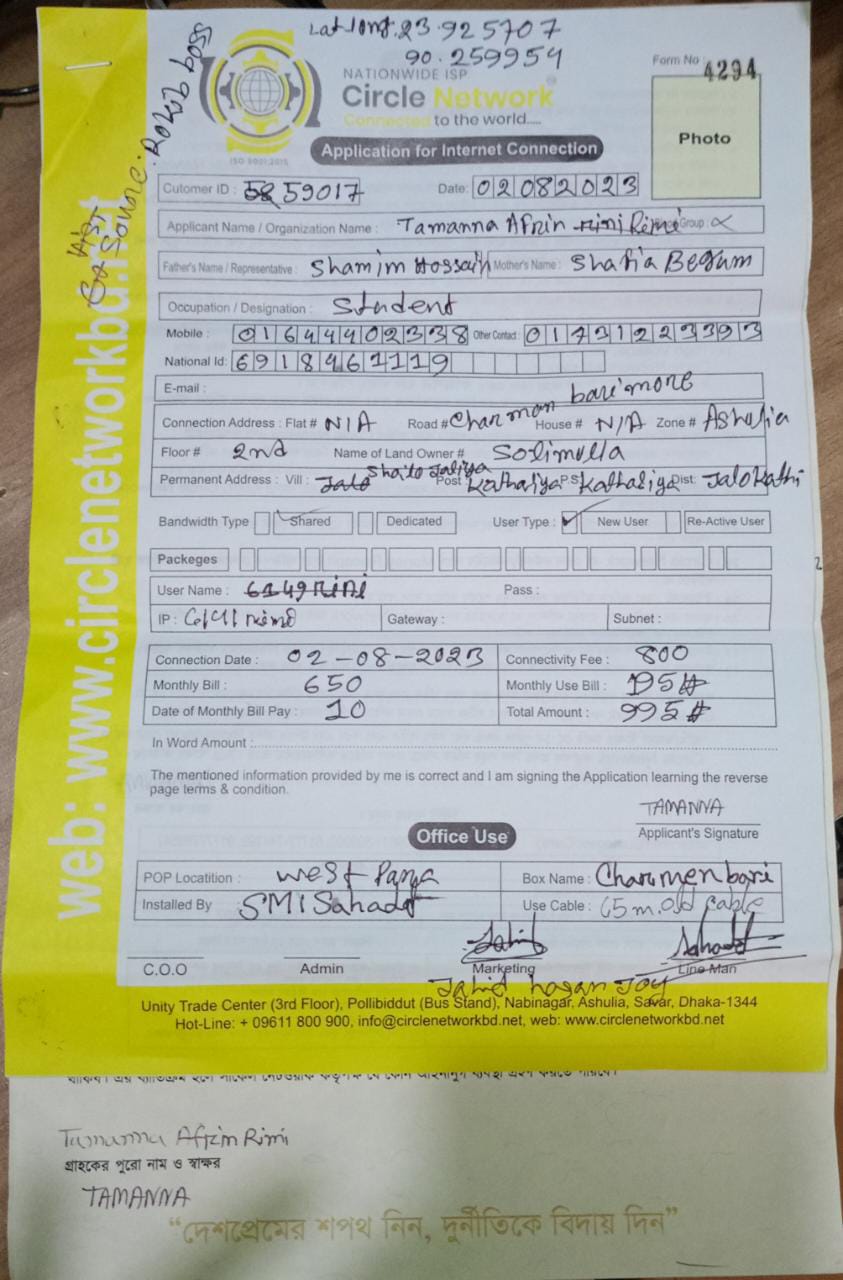 Lat long. 23.925707
90.259954
NATIONWIDE ISP
Circle Network
Connected to the world.....
ISO 9001:2015
Form No 4294
Photo
Application for Internet Connection
web: www.circlenetworkbd.net
Source: Rakib boss
Cutomer ID : 59017 Date: 02082023
Applicant Name / Organization Name : Tamanna Afrin Rimi Group :
Father's Name / Representative : Shamim Hossain Mother's Name : Shafia Begum
Occupation / Designation : Student
Mobile : 01644402338 Other Contact : 01731223393
National Id: 6918461119
E-mail :
Connection Address : Flat # N/A Road # Charman bari more House # N/A Zone # Ashulia
Floor # 2nd Name of Land Owner # Solimulla
Permanent Address : Vill : Post : Kathaliya P.S: Kathaliya Dist: Jalokathi
Bandwidth Type Shared Dedicated User Type : New User Re-Active User
Packeges
User Name : 6149Rini Pass :
IP : Gateway : Subnet :
Connection Date : 02-08-2023 Connectivity Fee : 800
Monthly Bill : 650 Monthly Use Bill : 195#
Date of Monthly Bill Pay : 10 Total Amount : 995#
In Word Amount :
The mentioned information provided by me is correct and I am signing the Application learning the reverse
page terms & condition.
TAMANNA
Applicant's Signature
Office Use
POP Locatition : West Parga Box Name : Charmenbari
Installed By SMI Sahadat Use Cable : 65m. old cable
C.O.O Admin Marketing Line Man
Jahid hasan Joy
Unity Trade Center (3rd Floor), Pollibiddut (Bus Stand), Nabinagar, Ashulia, Savar, Dhaka-1344
Hot-Line: + 09611 800 900, info@circlenetworkbd.net, web: www.circlenetworkbd.net
Tamanna Afrin Rimi
গ্রাহকের পুরো নাম ও স্বাক্ষর
TAMANNA
“দেশপ্রেমের শপথ নিন, দুর্নীতিকে বিদায় দিন”